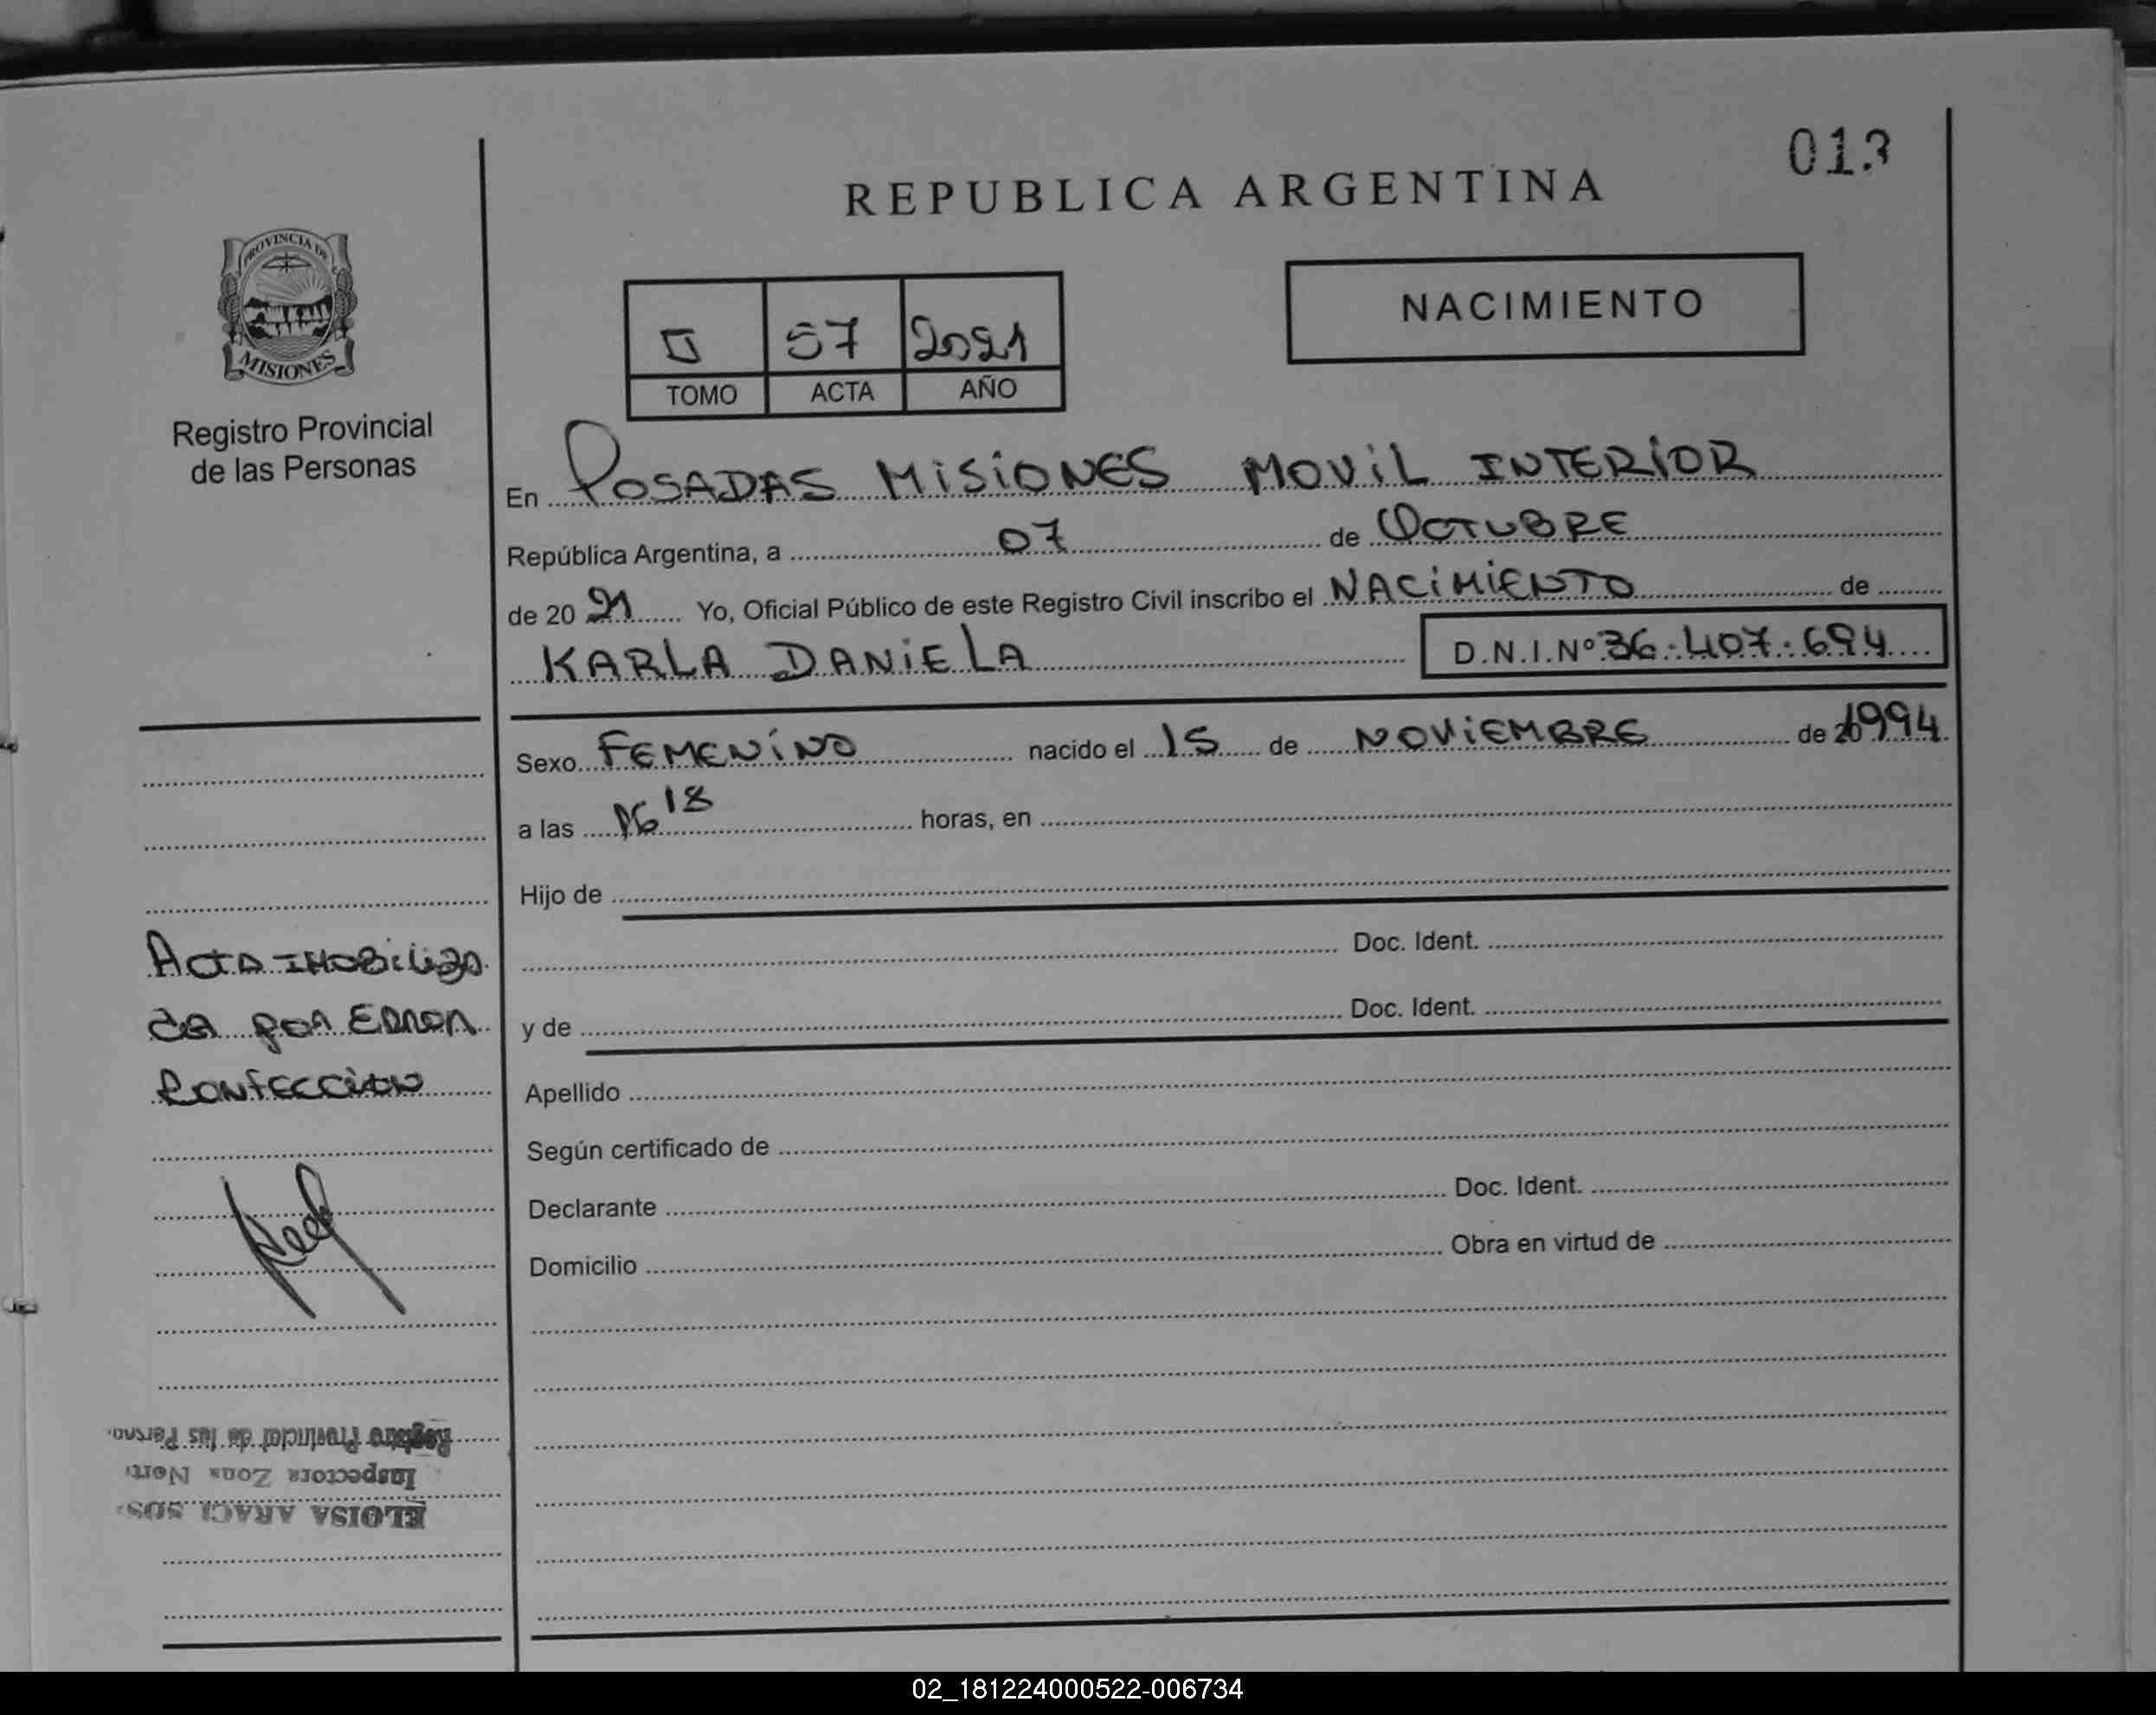 013
REPUBLICA ARGENTINA
NACIMIENTO
PROVINCIA DE
MISIONES
Registro Provincial
de las Personas
57 2021
TOMO ACTA AÑO
En POSADAS MISIONES MOVIL INTERIOR
República Argentina, a 07 de OCTUBRE
de 20 21 Yo, Oficial Público de este Registro Civil inscribo el NACIMIENTO de
KARLA DANIELA D.N.I.Nº 36.407.694
Sexo FEMENINO nacido el 15 de NOVIEMBRE de 1994
a las 16 18 horas, en
Hijo de
Doc. Ident.
y de Doc. Ident.
Apellido
Según certificado de
Declarante Doc. Ident.
Domicilio Obra en virtud de
ACTA IMOBILIZA
DA por ERROR
CONFECCION
ELOISA ARACI SOS
Inspectora Zona Nort
Registro Provincial de las Person
02_181224000522-006734